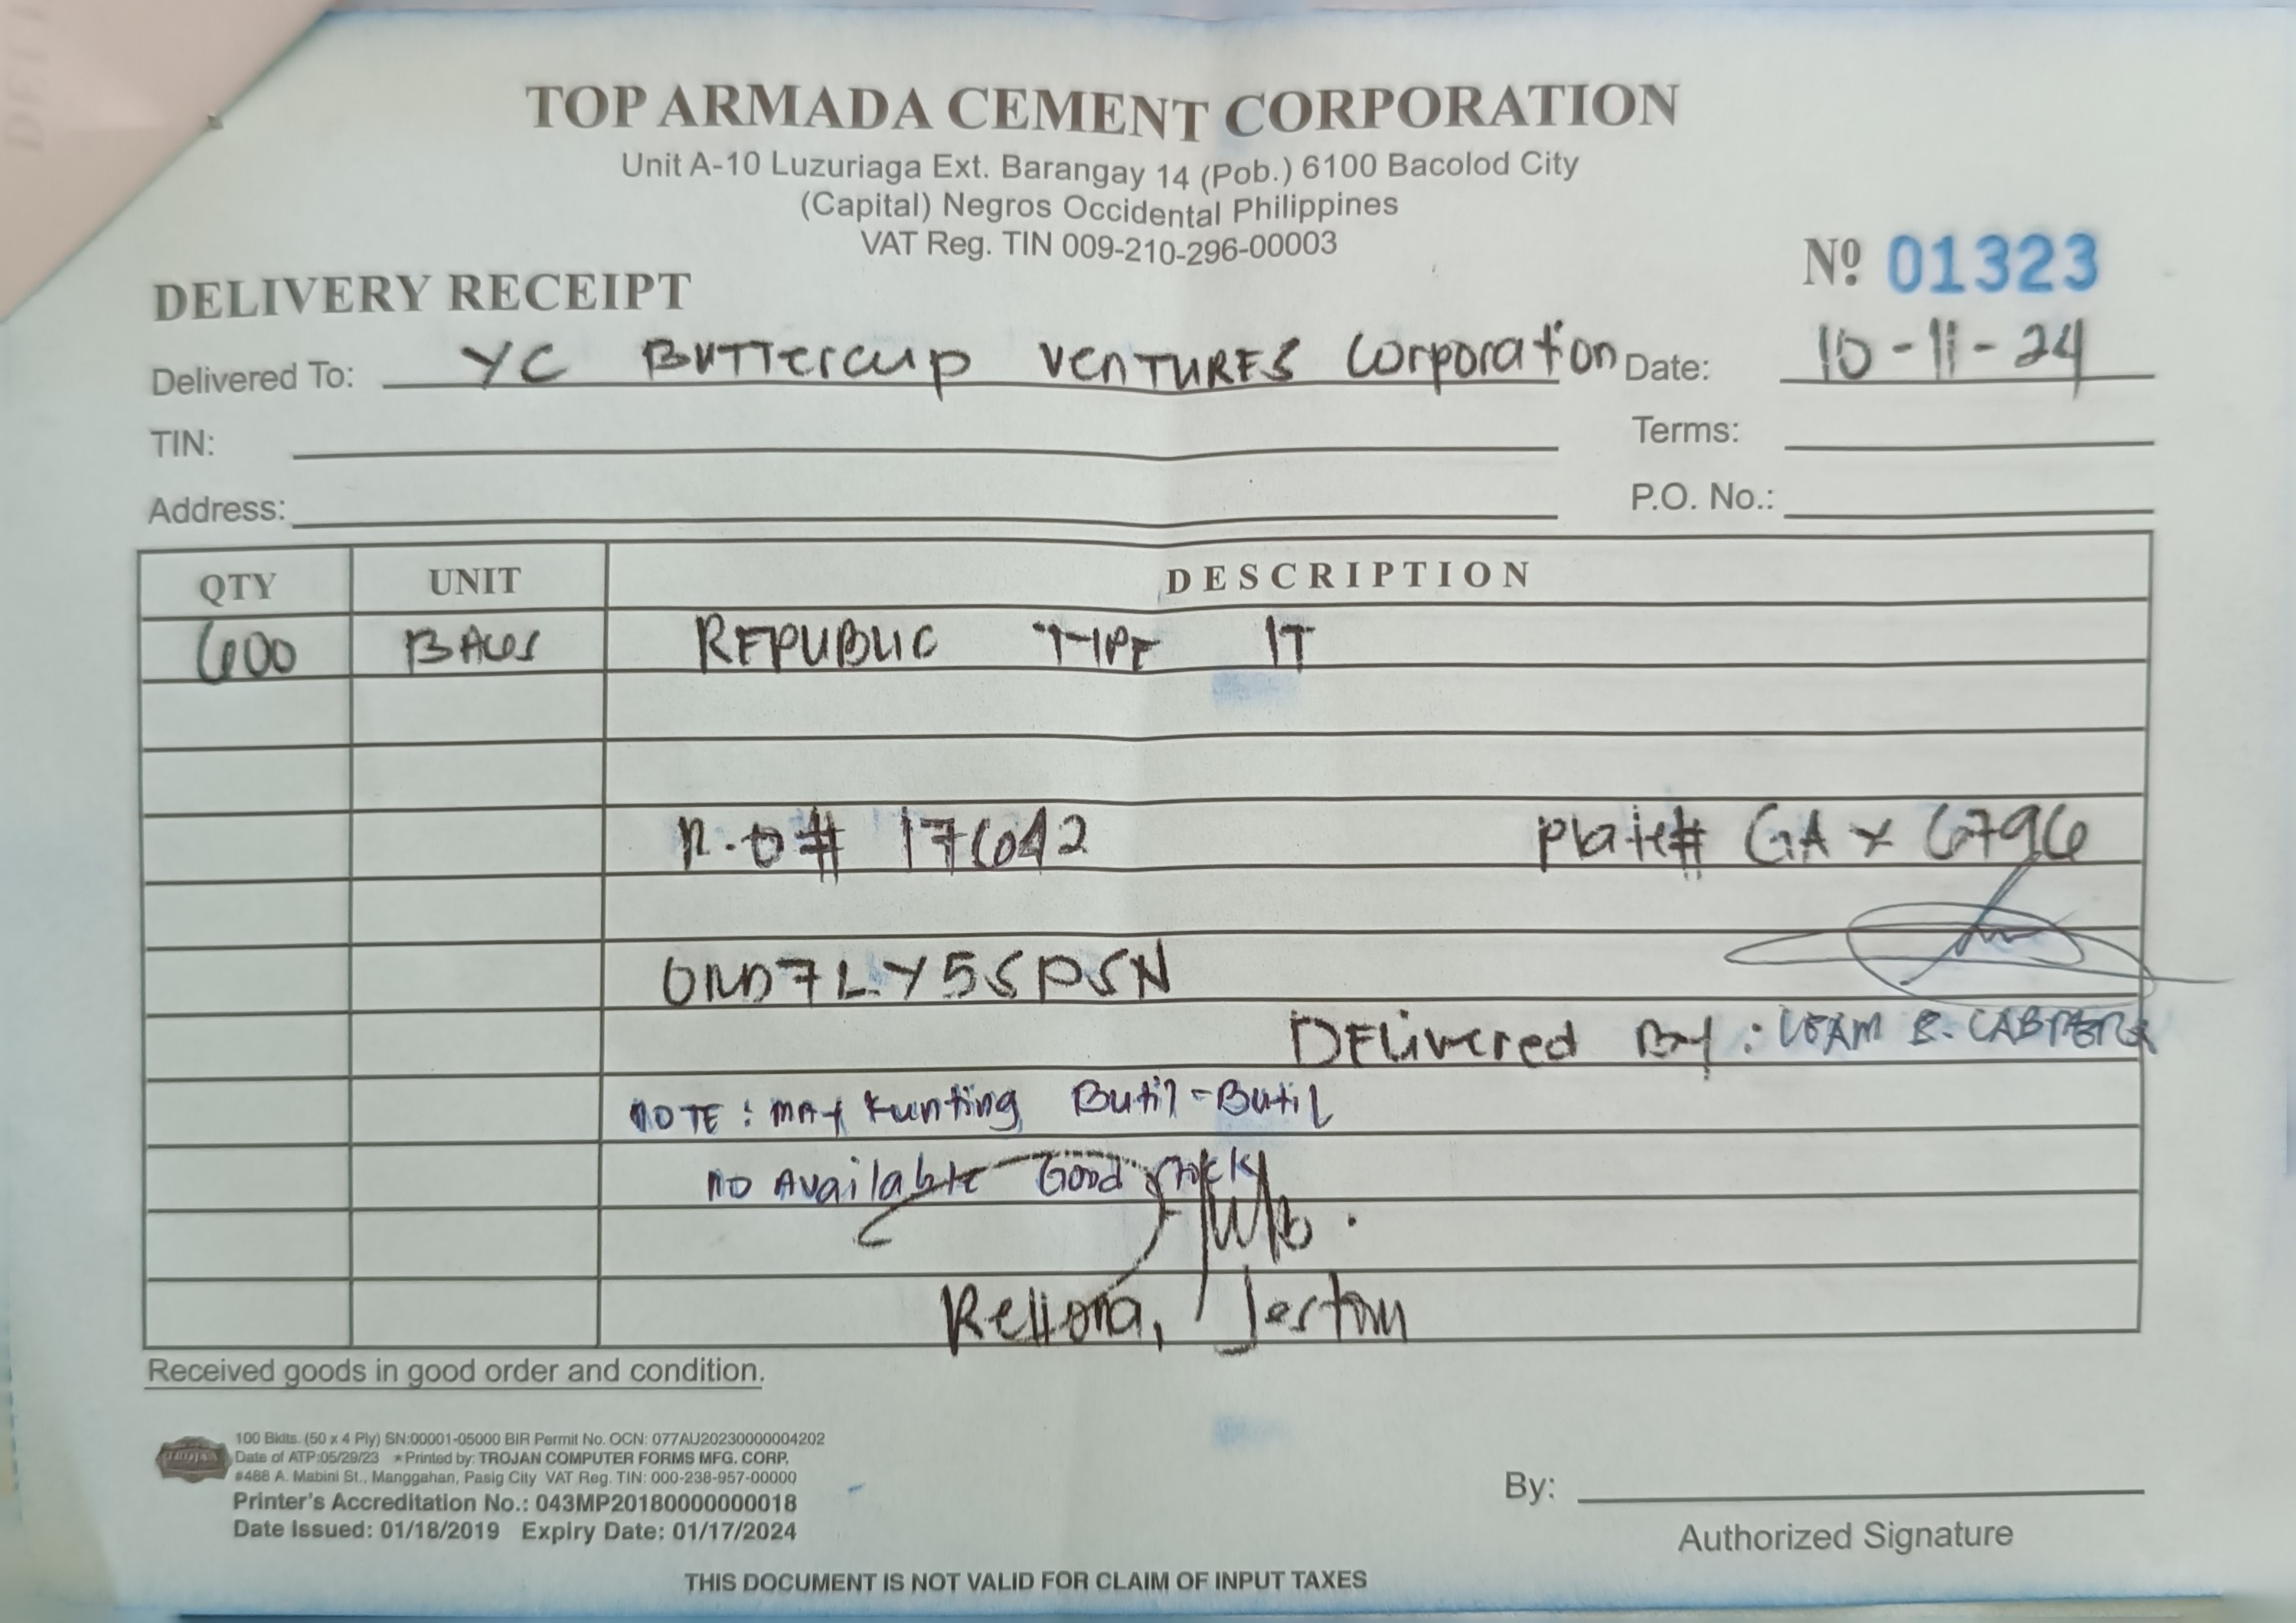 TOP ARMADA CEMENT CORPORATION
Unit A-10 Luzuriaga Ext. Barangay 14 (Pob.) 6100 Bacolod City
(Capital) Negros Occidental Philippines
VAT Reg. TIN 009-210-296-00003
DELIVERY RECEIPT
Nº 01323
Delivered To: YC BUTTERCUP VENTURES Corporation Date: 10-11-24
TIN: Terms:
Address: P.O. No.:
QTY UNIT DESCRIPTION
600 BAGS REPUBLIC TYPE 1T
R.O# 176042 Plate# GAX 6796
Delivered By: B. CABRERA
NOTE: MAY Kunting Butil-Butil
NO Available Good stock
Rellora, Jestoni
Received goods in good order and condition.
TROJAN
100 Bklts. (50 x 4 Ply) SN:00001-05000 BIR Permit No. OCN: 077AU20230000004202
Date of ATP:05/29/23 ★Printed by: TROJAN COMPUTER FORMS MFG. CORP.
#488 A. Mabini St., Manggahan, Pasig City VAT Reg. TIN: 000-238-957-00000
Printer's Accreditation No.: 043MP20180000000018
Date Issued: 01/18/2019 Expiry Date: 01/17/2024
By:
Authorized Signature
THIS DOCUMENT IS NOT VALID FOR CLAIM OF INPUT TAXES